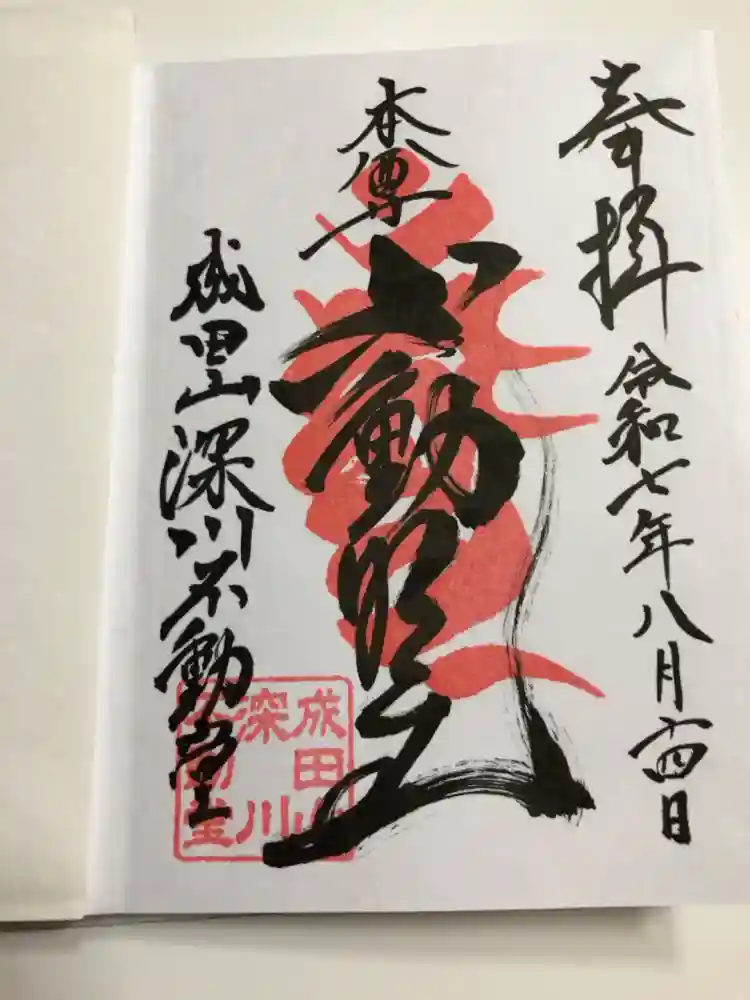 奉拝
令和七年八月十四日
本尊
不動明王
成田山深川不動堂
成田山
深川
不動堂